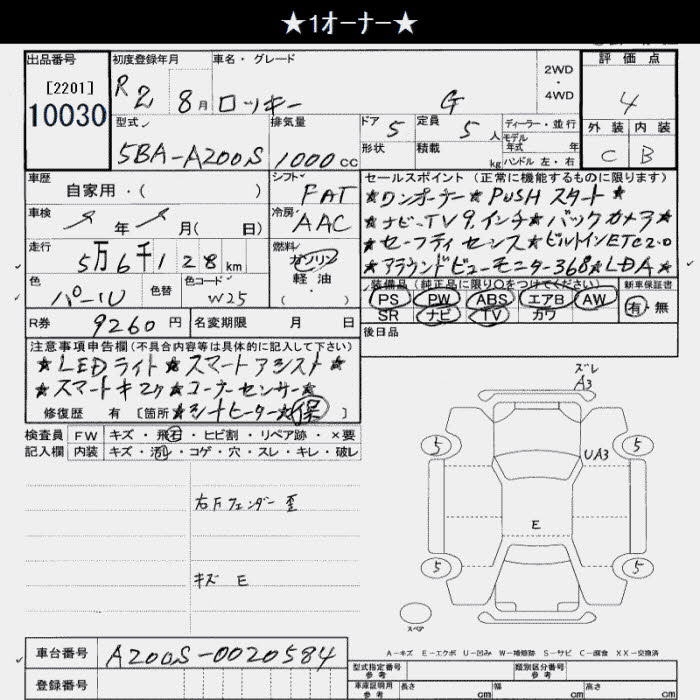 ★1オーナー★
出品番号 初度登録年月 車名・グレード 評価点
[2201]
10030
R2 8月 ロッキー G 2WD・4WD 4
型式 排気量 ドア 5 定員 5人 ディーラー・並行
モデル年式 年
外装 内装
5BA-A200S 1000cc 形状 積載 kg ハンドル 左・右 C B
車歴 シフト セールスポイント(正常に機能するものに限ります)
自家用・( ) FAT ★ワンオーナー★PUSHスタート★
車検 冷房 AAC ★ナビ・TV9インチ★バックカメラ★
年 月( 日) ★セーフティセンス★ビルトインETC2.0
走行 燃料 ★アラウンドビューモニター368★LDA★
5万6千128km ガソリン
軽油
( )
色 色替 色コード 装備品(純正品に限り○をつけてください) 新車保証書
パール W25 PS PW ABS エアB AW 有・無
SR ナビ TV カワ
R券 9260円 名変期限 月 日 後日品
注意事項申告欄(不具合内容等は具体的に記入して下さい)
★LEDライト★スマートアシスト★
★スマートキー2ケ★コーナーセンサー★
修復歴 有 [箇所★シートヒーター★保]
検査員 FW キズ・飛石・ヒビ割・リペア跡・×要
記入欄 内装 キズ・汚レ・コゲ・穴・スレ・キレ・破レ
右Fフェンダー歪
キズ E
ズレ
A3
5 5
UA3
E
5 5
スペア
A-キズ E-エクボ U-凹み W-補修跡 S-サビ C-腐食 XX-交換済
車台番号 A200S-0020584
登録番号
型式指定番号 参考 類別区分番号 参考
車庫証明用 参考 長さ cm 幅 cm 高さ cm